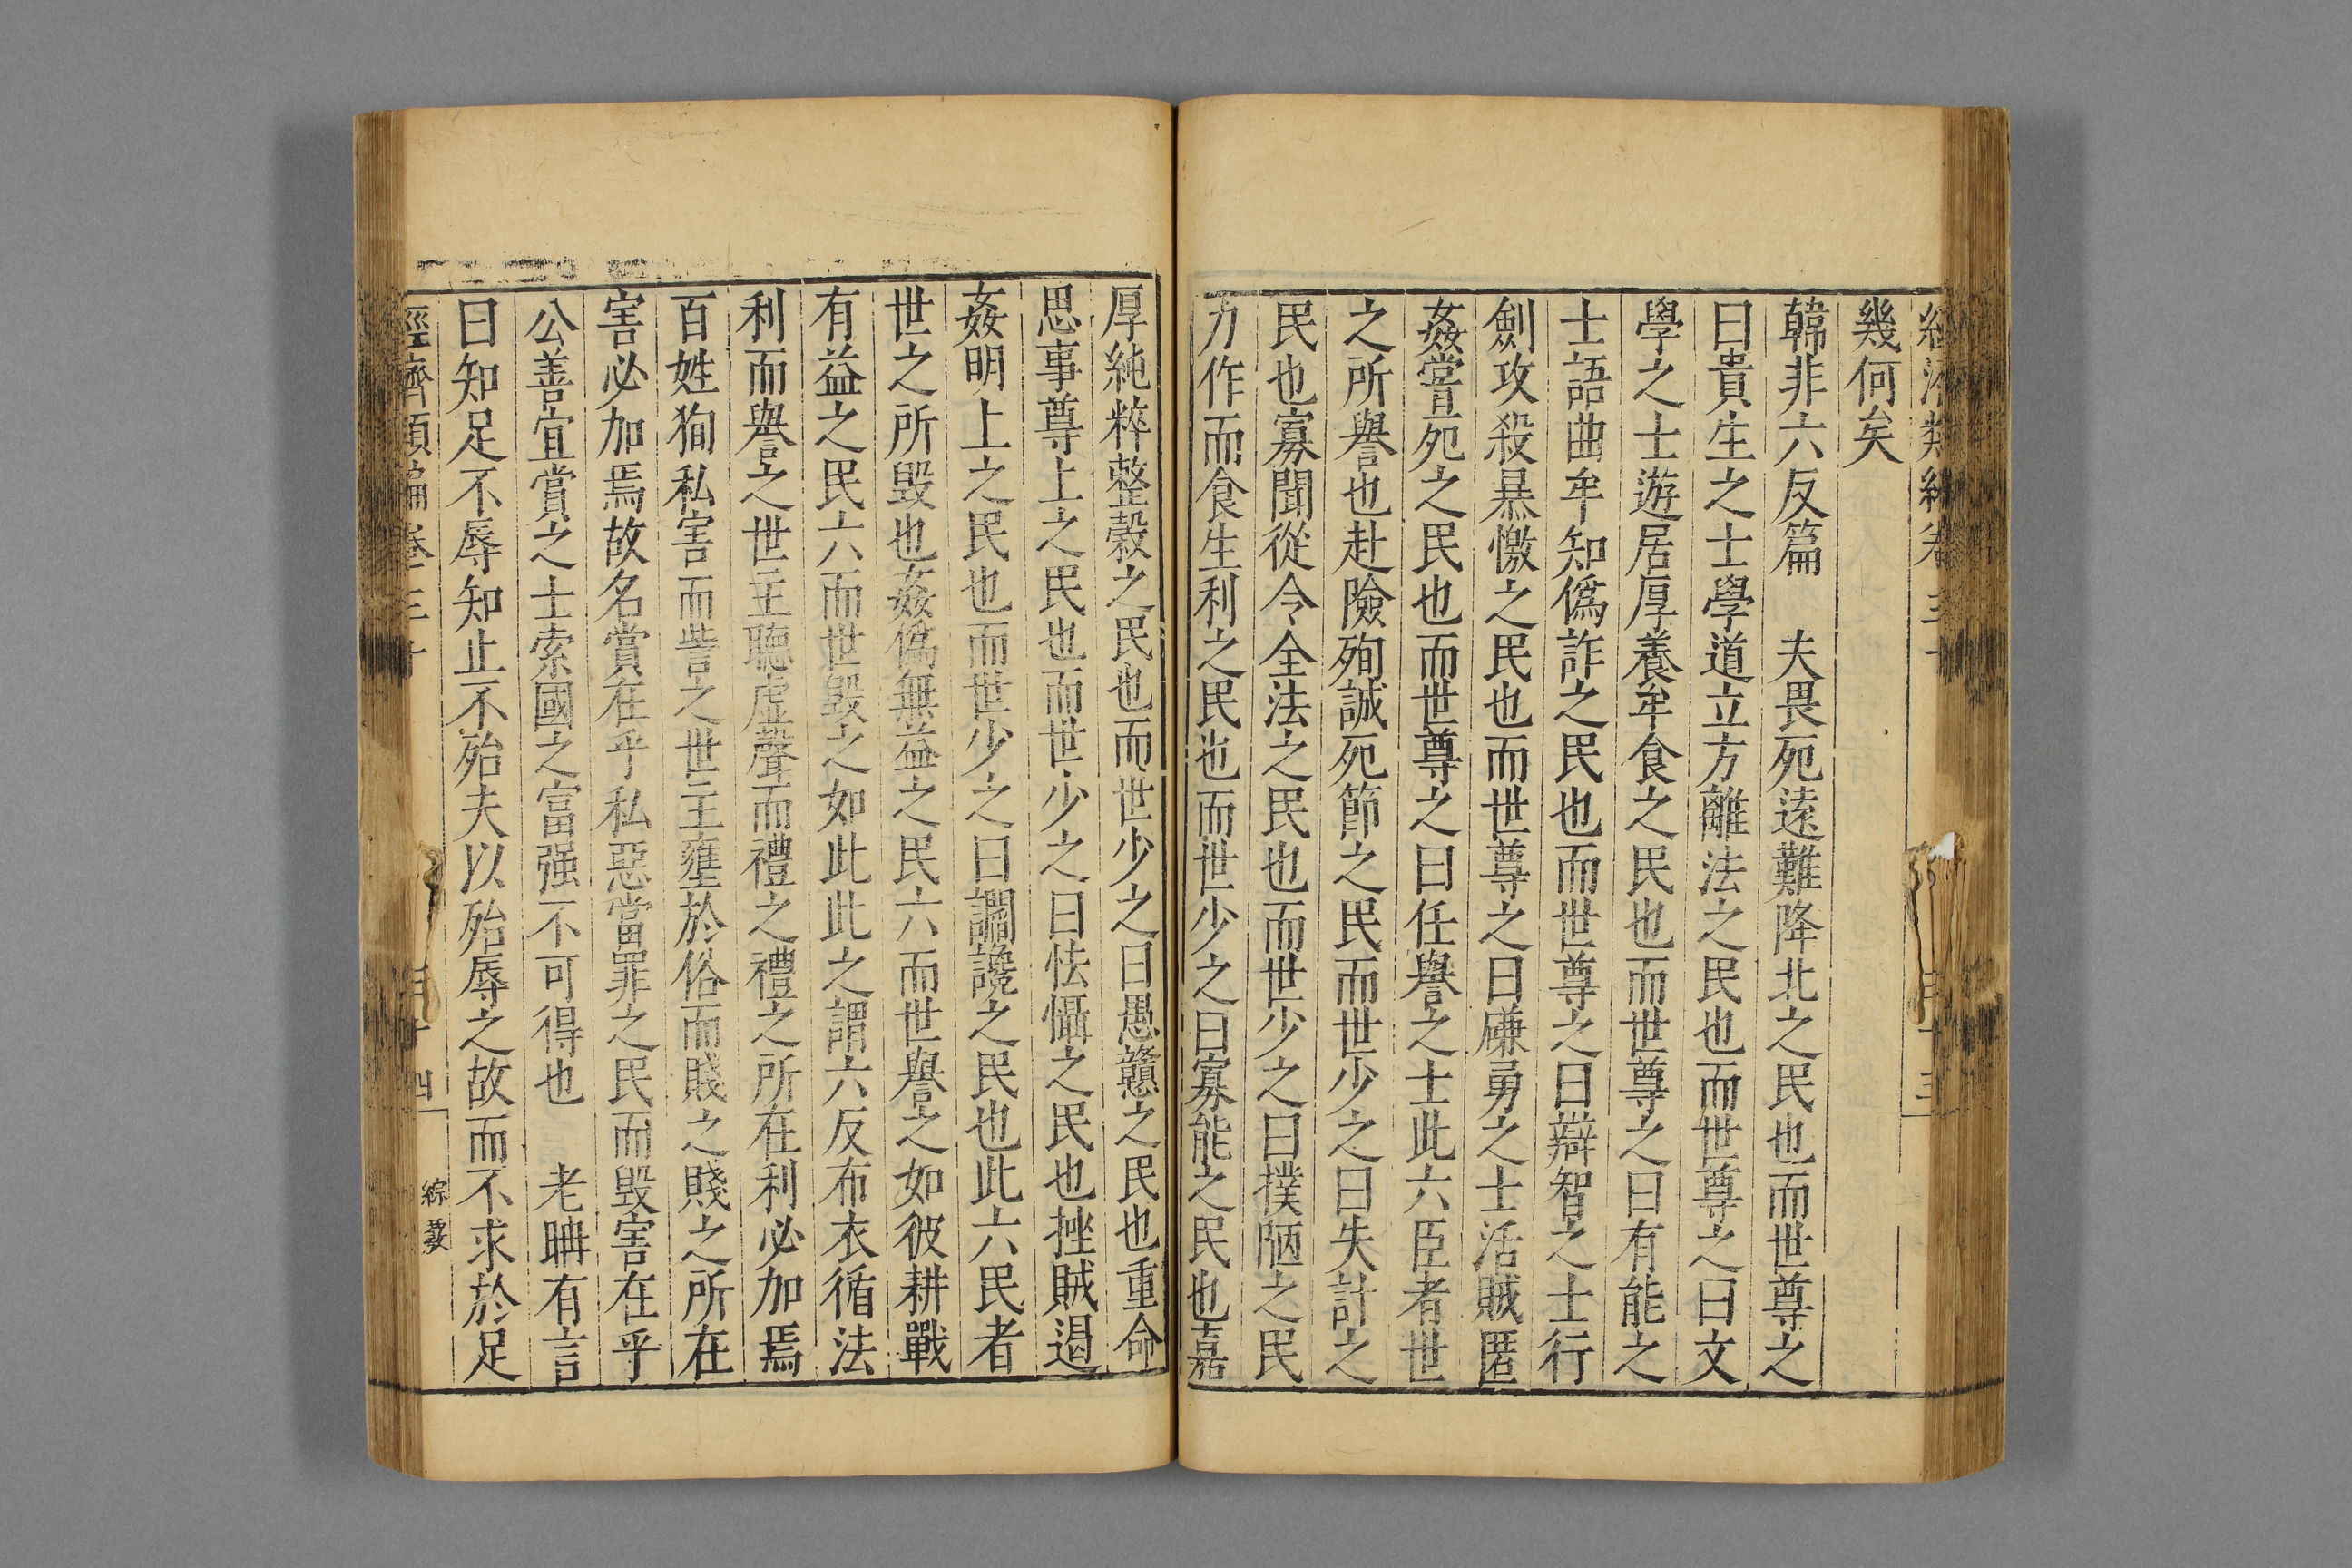 幾何矣
韓非六反篇　夫畏死遠難降北之民也而世尊之
曰貴生之士學道立方離法之民也而世尊之曰文
學之士遊居厚養牟食之民也而世尊之曰有能之
士語曲牟知偽詐之民也而世尊之曰辯智之士行
劍攻殺暴憿之民也而世尊之曰磏勇之士活賊匿
姦當死之民也而世尊之曰任譽之士此六臣者世
之所譽也赴險殉誠死節之民而世少之曰失計之
民也寡聞從令全法之民也而世少之曰撲陋之民
力作而食生利之民也而世少之曰寡能之民也嘉
厚純粹整榖之民也而世少之曰愚戇之民也重命
思事尊上之民也而世少之曰怯懾之民也挫賊遏
姦明上之民也而世少之曰讇讒之民也此六民者
世之所毀也姦偽無益之民六而世譽之如彼耕戰
有益之民六而世毀之如此此之謂六反布衣循法
利而譽之世主聽虛聲而禮之禮之所在利必加焉
百姓狥私害而訾之世主壅於俗而賤之賤之所在
害必加焉故名賞在乎私惡當罪之民而毀害在乎
公善宜賞之士索國之富强不可得也　老聃有言
曰知足不辱知止不殆夫以殆辱之故而不求於足
經濟類編卷三十　三十四　綜敎